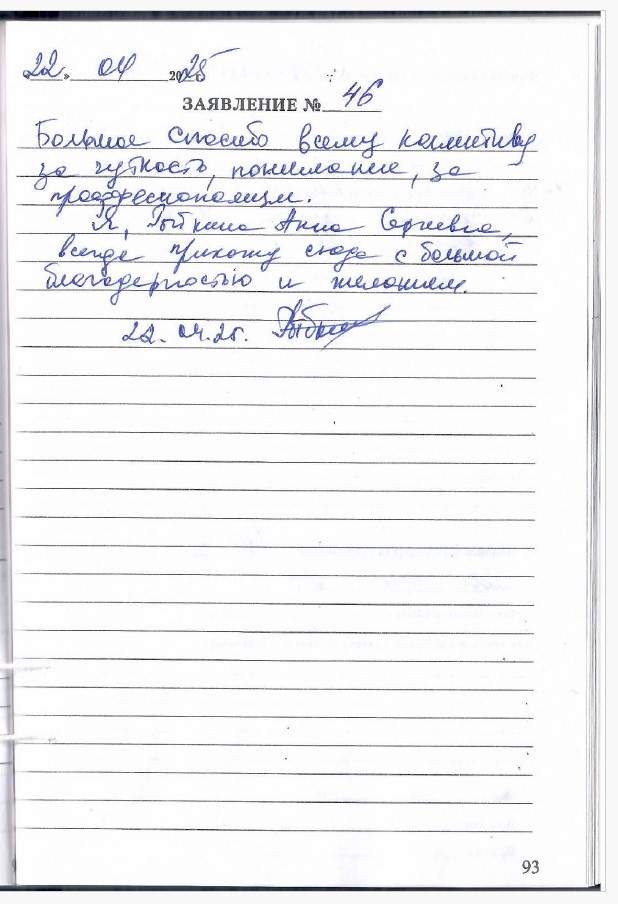 22. 04 2025
ЗАЯВЛЕНИЕ № 46
Большое спасибо всему коллективу
за чуткость, понимание, за
профессионализм.
Я, Рыбкина Анна Сергеевна,
всегда прихожу сюда с большой
благодарностью и желанием.
22.04.25.
93